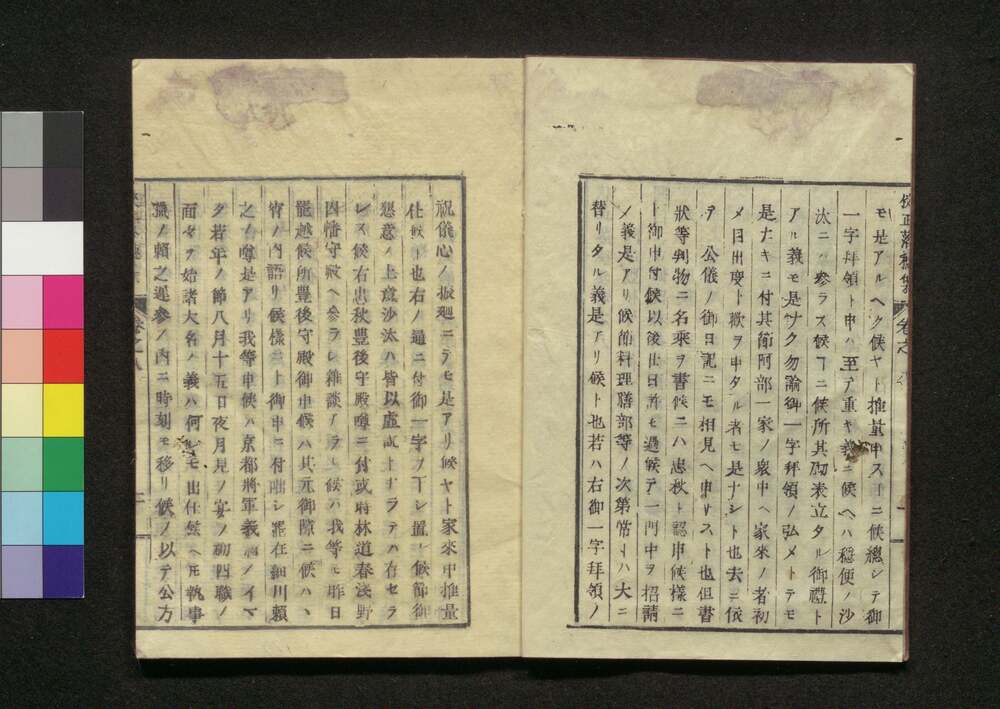 モ是アルヘク候ヤト推量申スヿニ候總シテ御
一字拜領ト申ハ至テ重キ義ニ候ヘハ穩便ノ沙
汰ニノ參ラス候フニ候所其砌表立タル御禮ト
アル義モ是ナク勿論御一字拜領ノ弘メトテモ
是ナキニ付其節阿部一家ノ衆中ヘ家來ノ者初
メ目出度ト歡ヲ申タル者モ是ナシト也去ニ依
テ公儀ノ御日記ニモ相見ヘ申サスト也但書
狀等判物ニ名乘ヲ書候ニハ忠秋ト認申候樣ニ
ト御申付候以後仕日若モ過候テ一門中ヲ招請
ノ義是アリ候節料理膳部等ノ次第常トハ大ニ
替リタル義是アリ候ト也若ハ右御一字拜領ノ
祝儀心ノ振廻ニテモ是アリ候ヤト家來中推量
仕候ト也右ノ通ニ付御一字ヲ下シ置レ候節御
懇意ノ上意沙汰ハ皆以虚説トナラテハ存セラ
レス候右忠秋豊後守殿噂ニ付或時林道春淺野
因幡守殿ヘ參ラレ雜談アラレ候ハ我等モ昨日
能越候所豊後守殿御申候ハ其元御隙ニ候ハヽ
宵ノ内語リ候樣ニト御申ニ付咄シ罷在細川頼
之ノ噂是アリ我等申候ハ京都將軍義滿ノイマ
タ若年ノ節八月十五日夜月見ノ宴ノ砌四職ノ
面々ヲ始諸大名ノ義ハ何レモ出仕候ヘ𪜈執事
職ノ頼之遲參ノ内ニ時刻モ移リ候ノ以テ公方
卷之八